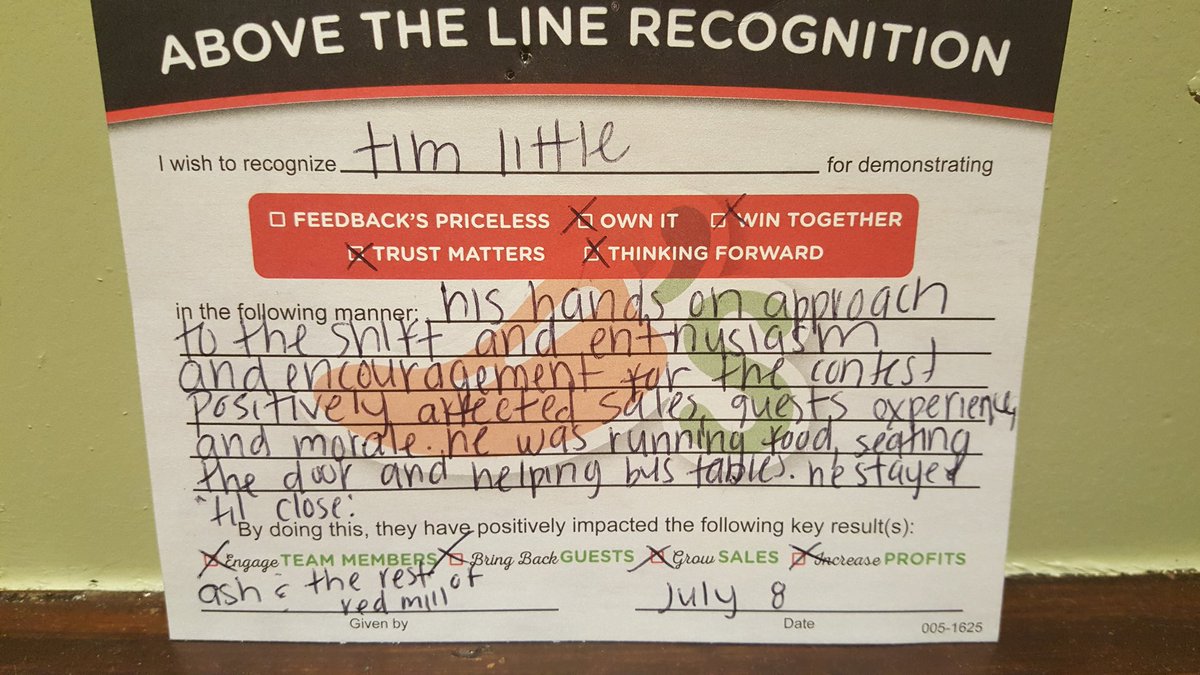 ABOVE THE LINE RECOGNITION
I wish to recognize tim little for demonstrating
FEEDBACK'S PRICELESS OWN IT WIN TOGETHER
TRUST MATTERS THINKING FORWARD
in the following manner: his hands on approach
to the shift and enthusiasm
and encouragement for the contest
positively affected sales, guests experience,
and morale. he was running food, seating
the door and helping bus tables. he stayed
'til close.
By doing this, they have positively impacted the following key result(s):
Engage TEAM MEMBERS Bring Back GUESTS Grow SALES Increase PROFITS
ash & the rest of
red mill July 8
Given by Date 005-1625